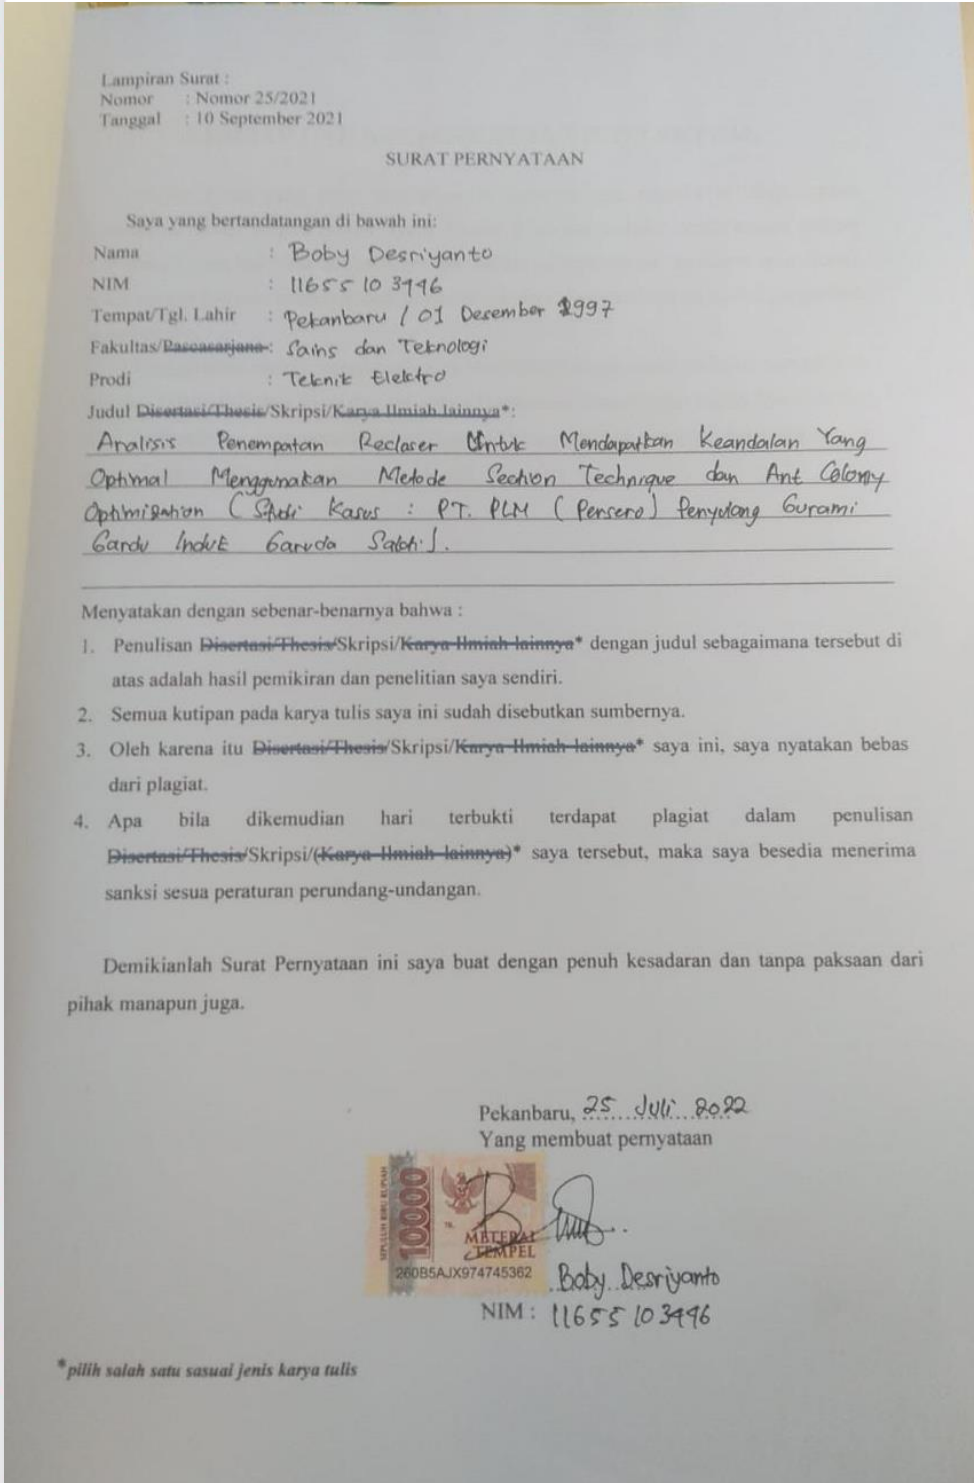 Lampiran Surat :
Nomor : Nomor 25/2021
Tanggal : 10 September 2021
SURAT PERNYATAAN
Saya yang bertandatangan di bawah ini:
Nama : Boby Desriyanto
NIM : 11655103496
Tempat/Tgl. Lahir : Pekanbaru / 01 Desember 1997
Fakultas/Pascasarjana : Sains dan Teknologi
Prodi : Teknik Elektro
Judul Disertasi/Thesis/Skripsi/Karya Ilmiah lainnya*:
Analisis Penempatan Recloser Untuk Mendapatkan Keandalan Yang
Optimal Menggunakan Metode Section Technique dan Ant Colony
Optimization ( Studi Kasus : PT. PLN ( Persero ) Penyulang Gurami
Gardu Induk Garuda Sakti ).
Menyatakan dengan sebenar-benarnya bahwa :
1. Penulisan Disertasi/Thesis/Skripsi/Karya Ilmiah lainnya* dengan judul sebagaimana tersebut di
atas adalah hasil pemikiran dan penelitian saya sendiri.
2. Semua kutipan pada karya tulis saya ini sudah disebutkan sumbernya.
3. Oleh karena itu Disertasi/Thesis/Skripsi/Karya Ilmiah lainnya* saya ini, saya nyatakan bebas
dari plagiat.
4. Apa bila dikemudian hari terbukti terdapat plagiat dalam penulisan
Disertasi/Thesis/Skripsi/(Karya Ilmiah lainnya)* saya tersebut, maka saya besedia menerima
sanksi sesua peraturan perundang-undangan.
Demikianlah Surat Pernyataan ini saya buat dengan penuh kesadaran dan tanpa paksaan dari
pihak manapun juga.
Pekanbaru, 25 Juli 2022
Yang membuat pernyataan
SEPULUH RIBU RUPIAH
10000
METERAI
TEMPEL
260B5AJX974745362
Boby Desriyanto
NIM : 11655103496
*pilih salah satu sasuai jenis karya tulis